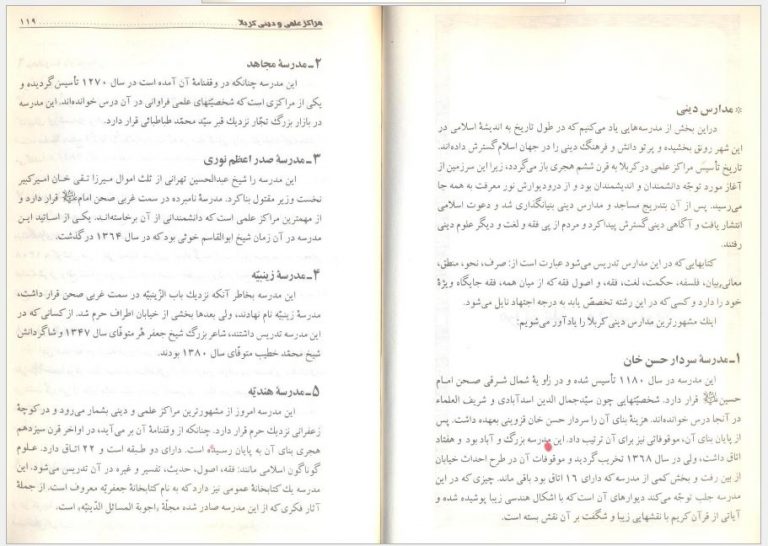 * مدارس دینی
دراین بخش از مدرسه‌هایی یاد می‌کنیم که در طول تاریخ به اندیشهٔ اسلامی در
این شهر رونق بخشیده و پرتو دانش و فرهنگ دینی را در جهان اسلام گسترش داده‌اند.
تاریخ تأسیس مراکز علمی درکربلا به قرن ششم هجری باز می‌گردد، زیرا این سرزمین از
آغاز مورد توجّه دانشمندان و اندیشمندان بود و از درودیوارش نور معرفت به همه جا
می‌رسید. پس از آن بتدریج مساجد و مدارس دینی بنیانگذاری شد و دعوت اسلامی
انتشار یافت و آگاهی دینی گسترش پیداکرد و مردم از پی فقه و لغت و دیگر علوم دینی
رفتند.
کتابهایی که در این مدارس تدریس می‌شود عبارت است از: صرف، نحو، منطق،
معانی‌بیان، فلسفه، حکمت، لغت، فقه، و اصول فقه که از میان همه، فقه جایگاه ویژهٔ
خود را دارد و کسی که در این رشته تخصصّ یابد به درجه اجتهاد نایل می‌شود.
اینك مشهورترین مدارس دینی کربلا را یادآور می‌شویم:
۱ـ مدرسهٔ سردار حسن خان
این مدرسه در سال ۱۱۸۰ تأسیس شده و در زاویهٔ شمال شرقی صحن امام
حسین قرار دارد. شخصیّتهایی چون سیّدجمال الدین اسدآبادی و شریف العلماء
در آنجا درس خوانده‌اند. هزینهٔ بنای آن را سردار حسن خان قزوینی بعهده داشت. پس
از پایان بنای آن، موقوفاتی نیز برای آن ترتیب داد. این مدرسه بزرگ و آباد بود و هفتاد
اتاق داشت، ولی در سال ۱۳۶۸ تخریب گردید و موقوفات آن در طرح احداث خیابان
از بین رفت و بخش کمی از مدرسه که دارای ۱۶ اتاق بود باقی ماند. چیزی که در این
مدرسه جلب توجّه می‌کند دیوارهای آن است که با اشکال هندسی زیبا پوشیده شده و
آیاتی از قرآن کریم با نقشهایی زیبا و شگفت بر آن نقش بسته است.
مراکز علمی و دینی کربلا
۱۱۹
۲ـ مدرسهٔ مجاهد
این مدرسه چنانکه در وقفنامهٔ آن آمده است در سال ۱۲۷۰ تأسیس گردیده و
یکی از مراکزی است که شخصیّتهای علمی فراوانی در آن درس خوانده‌اند. این مدرسه
در بازار بزرگ تجّار نزدیك قبر سیّد محمّد طباطبائی قرار دارد.
۳ـ مدرسهٔ صدر اعظم نوری
این مدرسه را شیخ عبدالحسین تهرانی از ثلث اموال میرزا تقی خان امیرکبیر
نخست وزیر مقتول بناکرد. مدرسهٔ نامبرده در سمت غربی صحن امام قرار دارد و
از مهمترین مراکز علمی است که دانشمندانی از آن برخاسته‌اند. یکی از اساتید این
مدرسه در آن زمان شیخ ابوالقاسم خوئی بود که در سال ۱۳۶۴ درگذشت.
۴ـ مدرسهٔ زینبیّه
این مدرسه بخاطر آنکه نزدیك باب الزّینبیّه در سمت غربی صحن قرار داشت،
مدرسهٔ زینبیّه نام نهادند، ولی بعدها بخشی از خیابان اطراف حرم شد. از کسانی که در
این مدرسه تدریس داشتند، شاعر بزرگ شیخ جعفر هُر متوفّای سال ۱۳۴۷ و شاگردانش
شیخ محمّد خطیب متوفّای سال ۱۳۸۰ بودند.
۵ـ مدرسهٔ هندیّه
این مدرسه امروز از مشهورترین مراکز علمی و دینی بشمار می‌رود و در کوچهٔ
زعفرانی نزدیك حرم قرار دارد. چنانکه از وقفنامهٔ آن بر می‌آید، در اواخر قرن سیزدهم
هجری بنای آن به پایان رسیده است. دارای دو طبقه است و ۲۲ اتاق دارد. علوم
گوناگون اسلامی مانند: فقه، اصول، حدیث، تفسیر و غیره در آن تدریس می‌شود. این
مدرسه یك کتابخانهٔ عمومی نیز دارد که به نام کتابخانهٔ جعفریّه معروف است. از جملهٔ
آثار فکری که از این مدرسه صادر شده مجلّهٔ «اجوبة المسائل الدّینیّه» است.